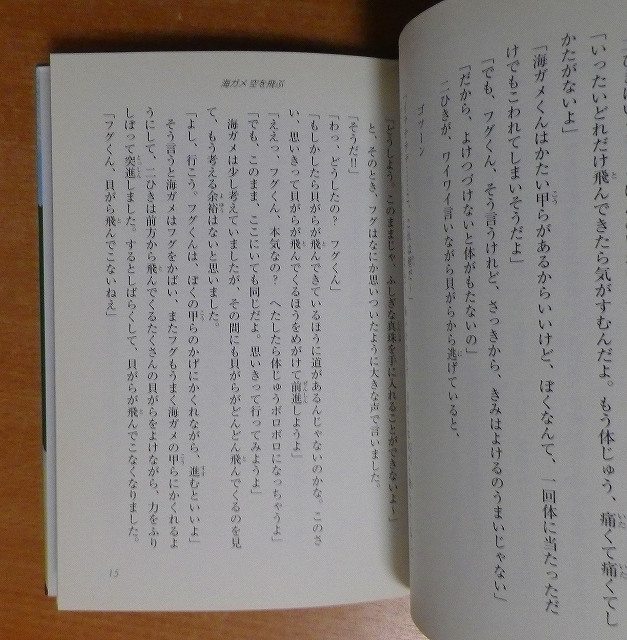 「いったいどれだけ飛んできたら気がすむんだよ。もう体じゅう、痛くて痛くてし
かたがないよ」
「海ガメくんはかたい甲らがあるからいいけど、ぼくなんて、一回体に当たっただ
けでもこわれてしまいそうだよ」
「でも、フグくん、そう言うけれど、さっきから、きみはよけるのうまいじゃない」
「だから、よけつづけないと体がもたないの」
二ひきが、ワイワイ言いながら貝がらから逃げていると、
ゴツーン
海ガメ 空を飛ぶ
「どうしよう。このままじゃ、ふしぎな真珠を手に入れることができないよ〜」
と、そのとき、フグはなにか思いついたように大きな声で言いました。
「そうだ!!」
「わっ、どうしたの? フグくん」
「もしかしたら貝がらが飛んできているほうに道があるんじゃないのかな。このさ
い、思いきって貝がらが飛んでくるほうをめがけて前進しようよ」
「ええっ、フグくん、本気なの? へたしたら体じゅうボロボロになっちゃうよ」
「でも、このまま、ここにいても同じだよ。思いきって行ってみようよ」
海ガメは少し考えていましたが、その間にも貝がらがどんどん飛んでくるのを見
て、もう考える余裕はないと思いました。
「よし、行こう。フグくんは、ぼくの甲らのかげにかくれながら、進むといいよ」
そう言うと海ガメはフグをかばい、またフグもうまく海ガメの甲らにかくれるよ
うにして、二ひきは前方から飛んでくるたくさんの貝がらをよけながら、力をふり
しぼって突進しました。するとしばらくして、貝がらが飛んでこなくなりました。
「フグくん、貝がら飛んでこないねえ」
15